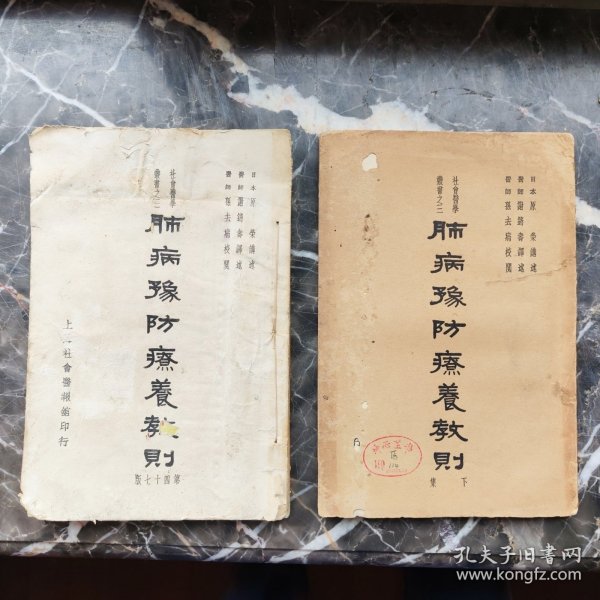 日本原 榮講述
醫師謝錫壽譯述
醫師孫去病校閱
社會醫學
叢書之三
肺病豫防療養教則
第四十七版
上 社會醫報舘印行
日本原 榮講述
醫師謝錫壽譯述
醫師孫去病校閱
社會醫學
叢書之三
肺病豫防療養教則
下集
孔夫子旧书网
www.kongfz.com